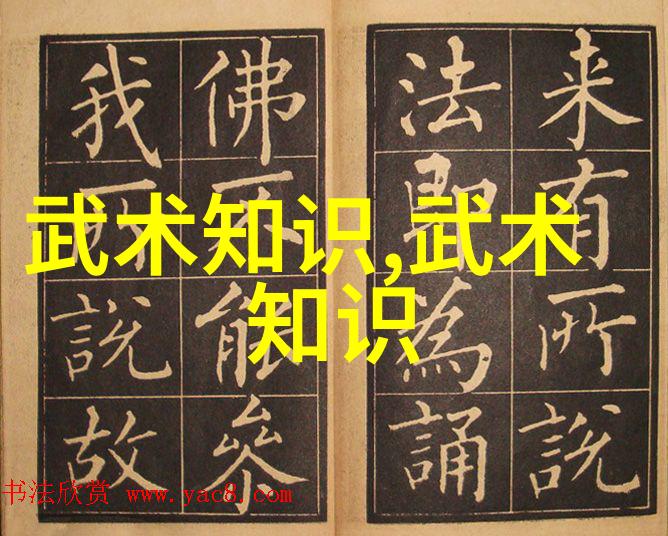 来有所説
法即為誦
佛不能叅
我所説故
武术知识,武术
知识
书法欣赏 www.yac8.com